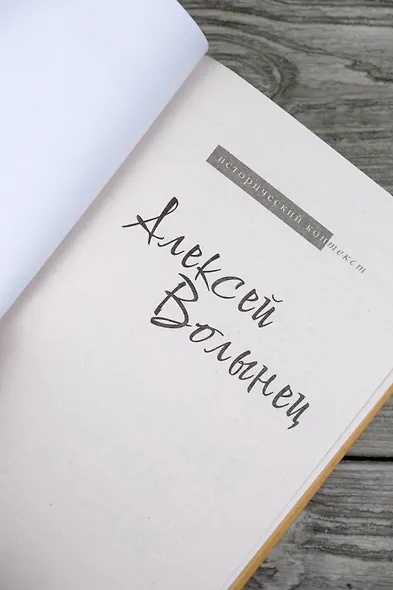 исторический контекст
Алексей
Волынец